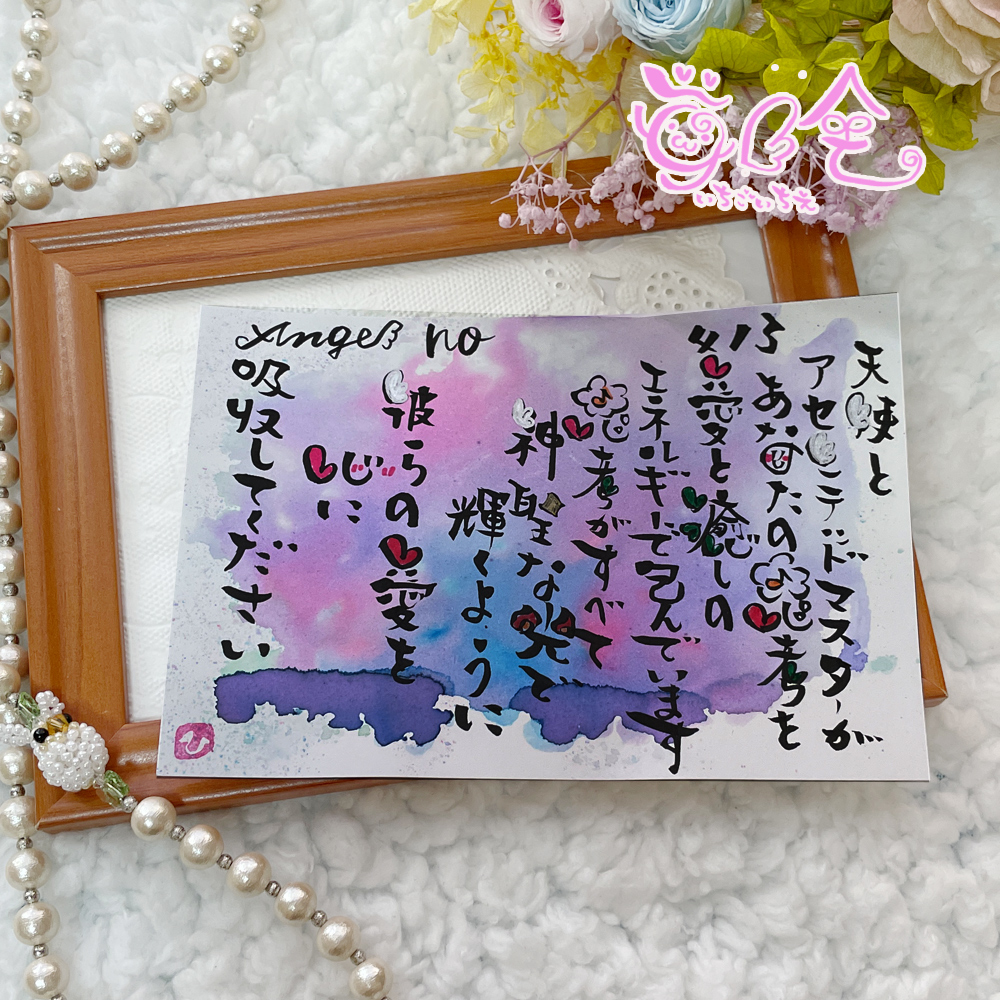 Angel no
天使と
アセンデッドマスターが
あなたの思考を
愛と癒しの
エネルギーで包んでいます
思考がすべて
神聖な光で
輝くように
彼らの愛を
心に
吸収してください
いちごいちえ